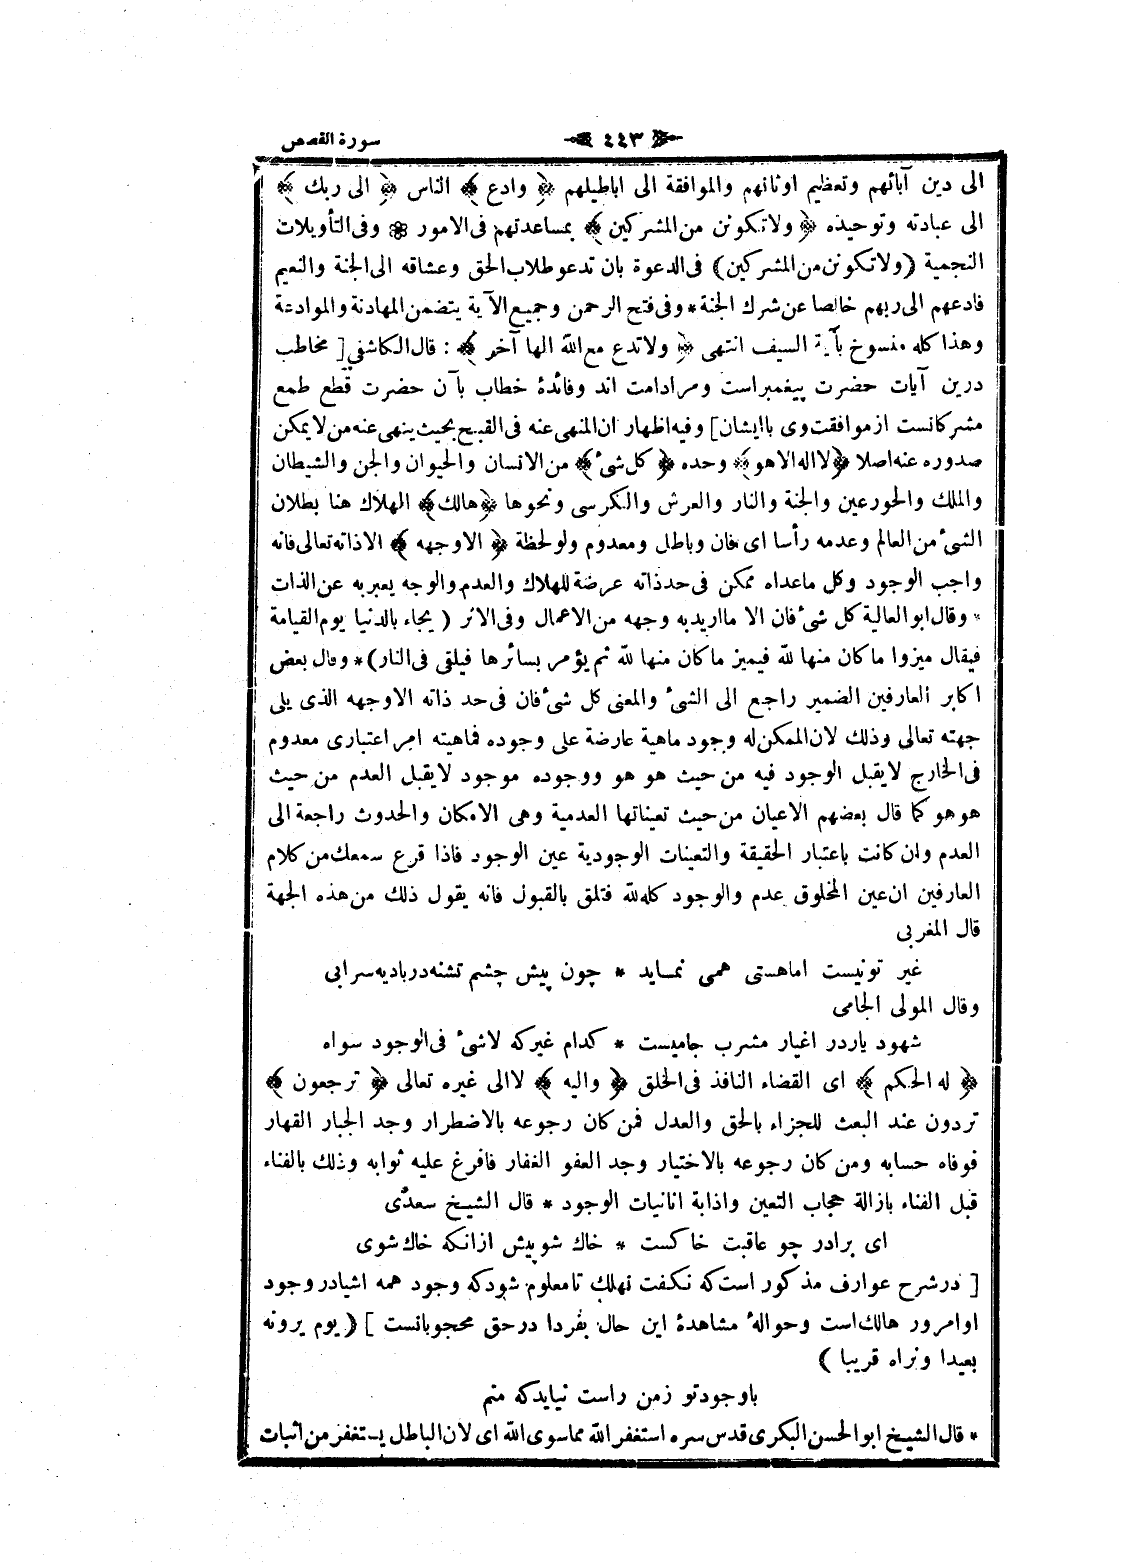 سورة القصص ٤٤٣
الى دين آبائهم وتعظيم اوثانهم والموافقة الى اباطيلهم ﴿ وادع ﴾ الناس ﴿ الى ربك ﴾
الى عبادته وتوحيذه ﴿ ولا تكونن من المشركين ﴾ بمساعدتهم فى الامور ❁ وفى التأويلات
النجمية ( ولا تكونن من المشركين ) فى الدعوة بان تدعو طلاب الحق وعشاقه الى الجنة والنعيم
فادعهم الى ربهم خالصا عن شرك الجنة * وفى فتح الرحمن وجميع الآية يتضمن المهادنة والموادعة
وهذا كله منسوخ بآية السيف انتهى ﴿ ولا تدع مع الله الها آخر ﴾ : قال الكاشفى [ مخاطب
درين آيات حضرت پيغمبراست ومرادامت اند وفائدۀ خطاب بآن حضرت قطع طمع
مشركانست ازموافقت وى باايشان ] وفيه اظهار ان المنهى عنه فى القبح بحيث ينهى عنه من لا يمكن
صدوره عنه اصلا ﴿ لا اله الا هو ﴾ وحده ﴿ كل شىء ﴾ من الانسان والحيوان والجن والشيطان
والملك والحور عين والجنة والنار والعرش والكرسى ونحوها ﴿ هالك ﴾ الهلاك هنا بطلان
الشىء من العالم وعدمه رأسا اى فان وباطل ومعدوم ولو لحظة ﴿ الا وجهه ﴾ الا ذاته تعالى فانه
واجب الوجود وكل ماعداه ممكن فى حد ذاته عرضة للهلاك والعدم والوجه يعبر به عن الذات
* وقال ابو العالية كل شىء فان الا ما اريد به وجهه من الاعمال وفى الاثر ( يجاء بالدنيا يوم القيامة
فيقال ميزوا ما كان منها لله فيميز ما كان منها لله ثم يؤمر بسائرها فيلقى فى النار ) * وقال بعض
اكابر العارفين الضمير راجع الى الشىء والمعنى كل شىء فان فى حد ذاته الا وجهه الذى يلى
جهته تعالى وذلك لان الممكن له وجود ماهية عارضة على وجوده فماهيته امر اعتبارى معدوم
فى الخارج لا يقبل الوجود فيه من حيث هو هو ووجوده موجود لا يقبل العدم من حيث
هو هو كما قال بعضهم الاعيان من حيث تعيناتها العدمية وهى الامكان والحدوث راجعة الى
العدم وان كانت باعتبار الحقيقة والتعينات الوجودية عين الوجود فاذا قرع سمعك من كلام
العارفين ان عين المخلوق عدم والوجود كله لله فتلق بالقبول فانه يقول ذلك من هذه الجهة
قال المغربى
غير تونيست اماهستى همى نمايد * چون پيش چشم تشنه درباديه سرابى
وقال المولى الجامى
شهود ياردر اغيار مشرب جاميست * كدام غيركه لاشىء فى الوجود سواه
﴿ له الحكم ﴾ اى القضاء النافذ فى الخلق ﴿ واليه ﴾ لا الى غيره تعالى ﴿ ترجعون ﴾
تردون عند البعث للجزاء بالحق والعدل فمن كان رجوعه بالاضطرار وجد الجبار القهار
فوفاه حسابه ومن كان رجوعه بالاختيار وجد العفو الغفار فافرغ عليه ثوابه وذلك بالفناء
قبل الفناء بازالة حجاب التعين واذابة انانيات الوجود * قال الشيخ سعدى
اى برادر چو عاقبت خاكست * خاك شوپيش ازانكه خاك شوى
[ درشرح عوارف مذكور است كه نكفت نهلك تامعلوم شودكه وجود همه اشيادر وجود
او امرور هالك است وحوالۀ مشاهدۀ اين حال بفردا درحق محجوبانست ] ( يوم يرونه
بعيدا ونراه قريبا )
باوجودتو زمن راست نيايدكه منم
* قال الشيخ ابو الحسن البكرى قدس سره استغفر الله مماسوى الله اى لان الباطل يستغفر من اثبات